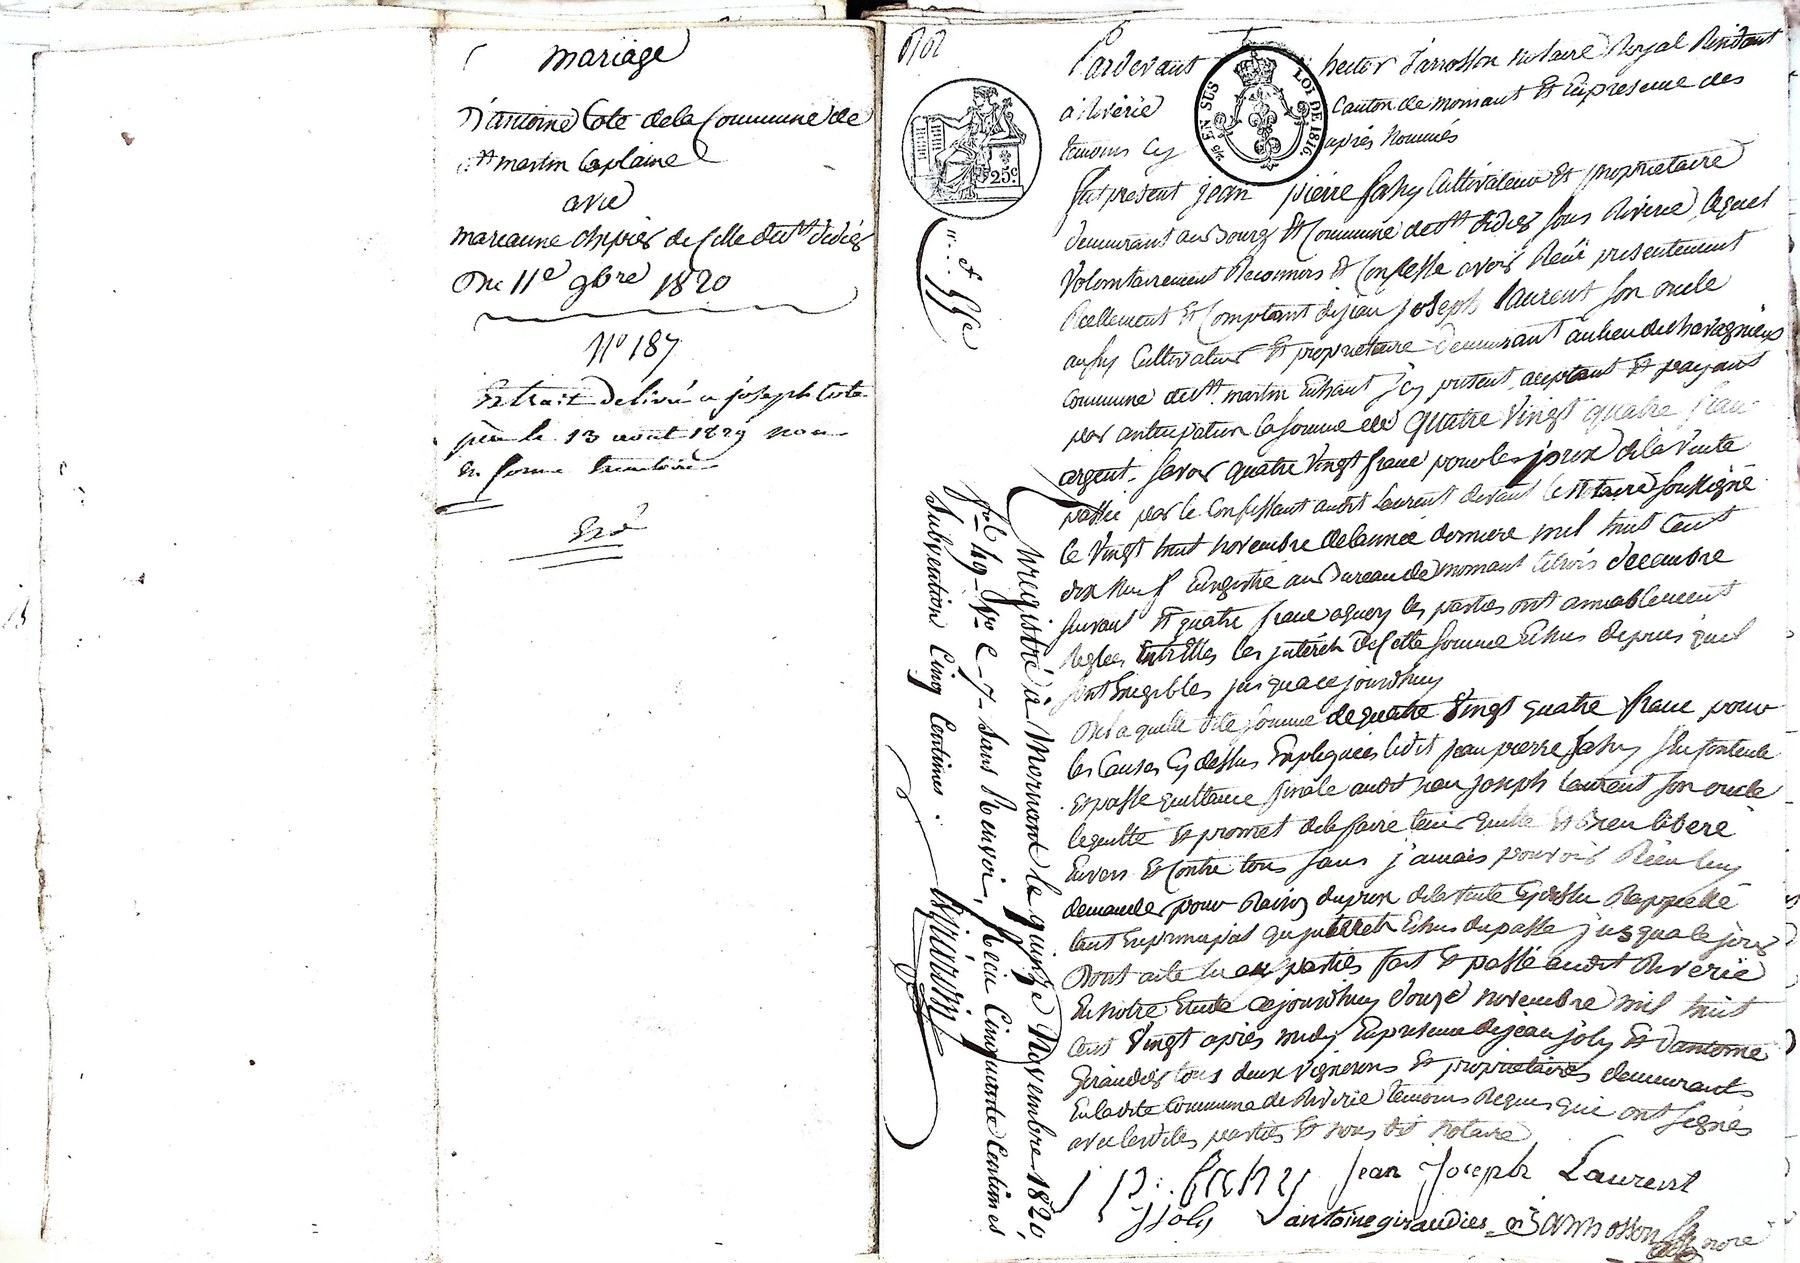 mariage
D'antoine Cote dela Commune de
St martin laplaine
avec
marianne chipier de Celle de St didier
Du 11e 9bre 1820
No 187
Extrait delivré a joseph Cote
père le 13 aout 1829 non
en forme
Pardevant hector d'arrosson notaire Royal Residant
à Riverie Canton de mornant Et En presence des
temoins Cy après Nommés
fut present jean pierre fahy Cultivateur Et proprietaire
demeurant au Bourg Et Commune de St didier sous Riverie, lequel
Volontairement Reconnois Et Confesse avoir Reçu presentement
Reellement Et Comptant de jean joseph laurent son oncle
aussy Cultivateur Et proprietaire demeurant au lieu de
Commune de St martin Enhaut jcy present, aceptant Et payant
par anticipation la somme de quatre vingt quatre fran
argent. savoir quatre vingt franc pour les prix de la vente
passée par le Confessant audit laurent devant le Notaire soussigné
le vingt huit novembre de l'année derniere mil huit Cent
dix neuf Enregistré au Bureau de mornant le trois decembre
suivant Et quatre franc aquoy les parties ont amiablement
Reglees Entr'Elles les jnterêts de Cette somme Echus depuis quil
sont Exigibles jusqua ce jourdhuy
De la quelle dite somme de quatre vingt quatre franc pour
les Causes Cy dessus Expliquées ledit jean pierre fahy s'en Contente
Et passe quittance finale audit jean joseph laurent son oncle
le quitte Et promet de le faire tenir quitte Et bien liberé
Envers Et Contre tous sans j'amais pouvoir Rien luy
demander pour Raison du prix de la vente Cy dessu Rappellé
tant En principal qu'jnterets Echus du passé jusqua ce jour
Dont acte lu aux parties fait Et passé audit Riverie
En notre Etude ce jourdhuy d'onze novembre mil huit
Cent vingt après midy En presence de jean joly Et d'antoine
Giraudier tous deux vignerons Et proprietaires demeurants
En la dite Commune de Riverie temoins Requis qui ont signés
avec lesdites parties Et nous dit notaire
j p. fahy jean joseph Laurent
j joly antoine giraudier
EN SUS
LOI DE 1816.
25c.
Enregistré à Mornant le quinze Novembre 1820,
fol. 49 - Vo C - 7 - sans Renvoi, Reçu Cinquante Centimes
Subvention Cinq Centimes.